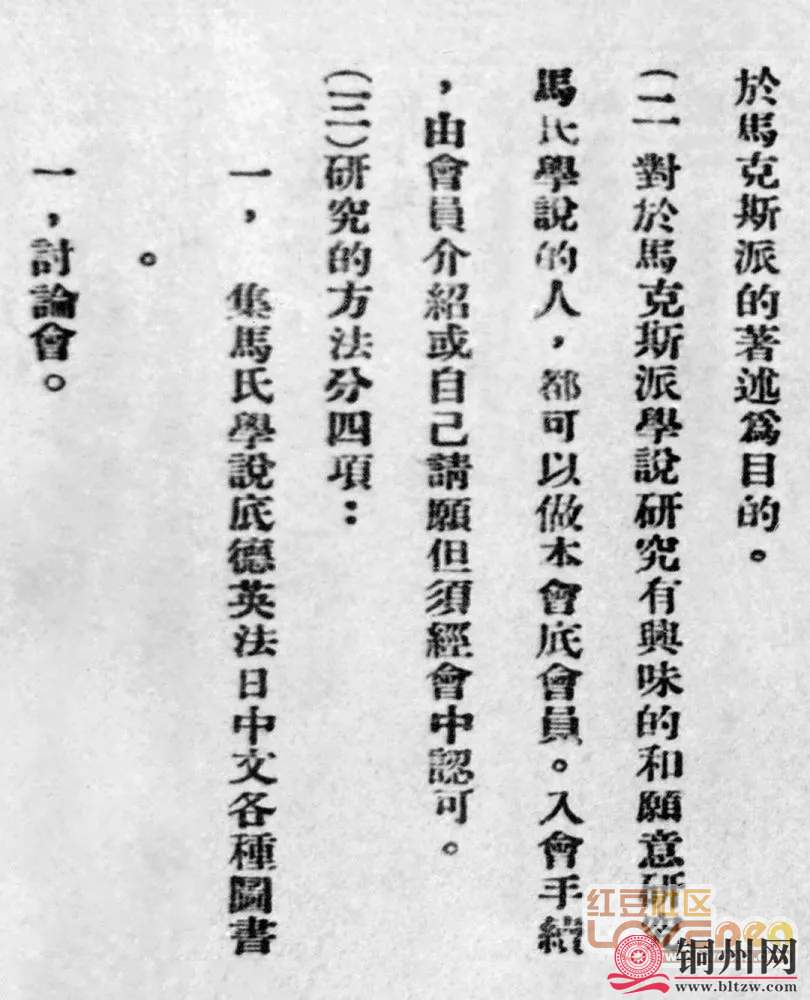 於馬克斯派的著述爲目的。
(二 對於馬克斯派學說研究有興味的和願意研究
馬氏學說的人，都可以做本會底會員。入會手續
，由會員介紹或自己請願但須經會中認可。
(三)研究的方法分四項：
一， 集馬氏學說底德英法日中文各種圖書
。
一，討論會。
红豆社区
铜州网
www.bltzw.com